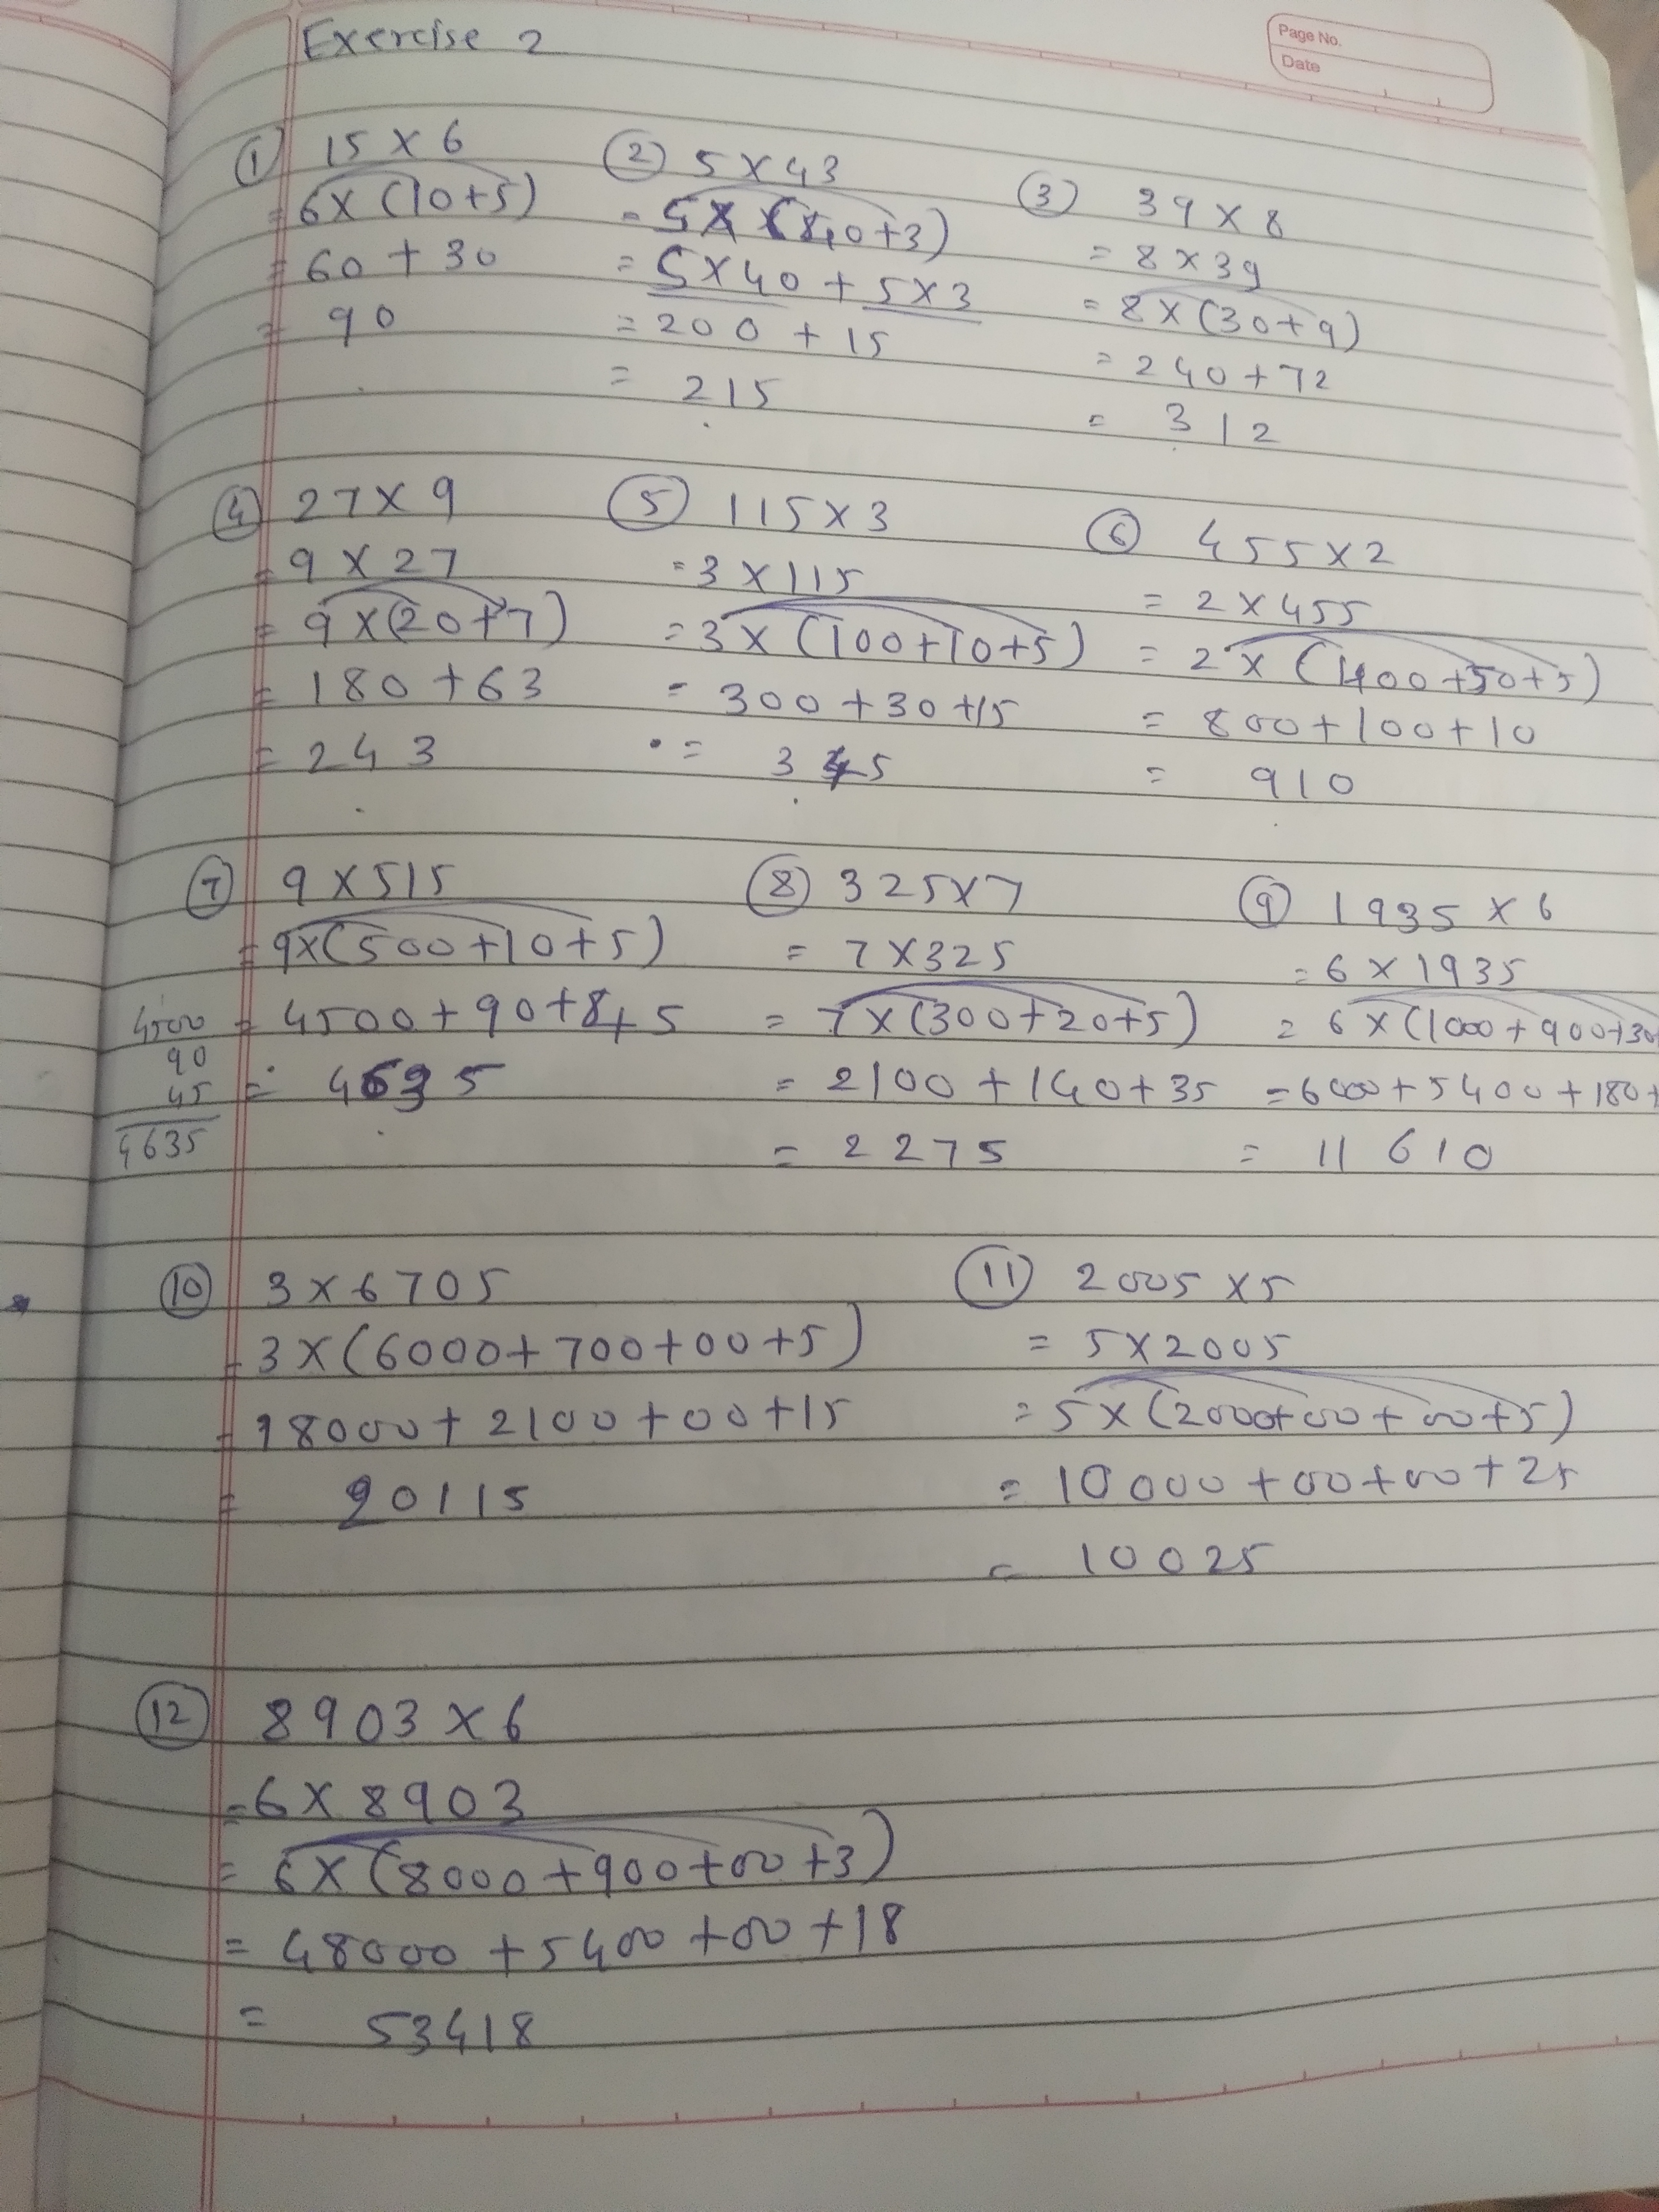 Page No.
Date
Exercise 2
① 15 × 6
= 6 × (10+5)
= 60 + 30
= 90
② 5 × 43
= 5 × (40+3)
= 5×40 + 5×3
= 200 + 15
= 215
③ 39 × 8
= 8 × 39
= 8 × (30+9)
= 240+72
= 312
④ 27 × 9
= 9 × 27
= 9 × (20+7)
= 180 + 63
= 243
⑤ 115 × 3
= 3 × 115
= 3 × (100+10+5)
= 300+30+15
= 345
⑥ 455×2
= 2 × 455
= 2 × (400+50+5)
= 800+100+10
= 910
⑦ 9 × 515
= 9×(500+10+5)
= 4500+90+45
= 4635
4500
90
45
4635
⑧ 325×7
= 7 × 325
= 7 × (300+20+5)
= 2100 + 140+35
= 2275
⑨ 1935 × 6
= 6 × 1935
= 6 × (1000+900+30
= 6000+5400+180+
= 11610
⑩ 3 × 6705
= 3 × (6000+700+00+5)
= 18000+2100+00+15
= 20115
⑪ 2005 × 5
= 5 × 2005
= 5 × (2000+00+00+5)
= 10000+00+00+25
= 10025
⑫ 8903 × 6
= 6 × 8903
= 6 × (8000+900+00+3)
= 48000 +5400+00+18
= 53418